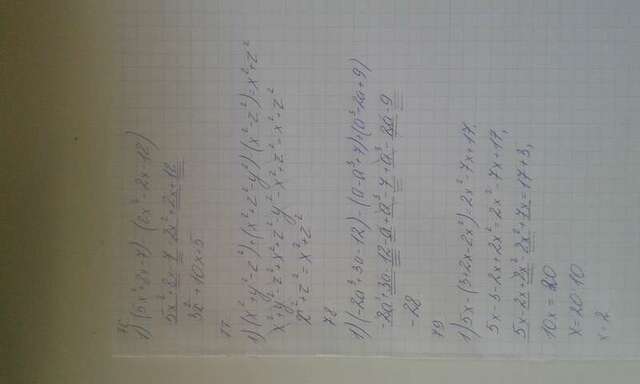 76
1) (5x²+8x-7)-(2x²-2x-12)
5x²+8x-7-2x²+2x+12
3x²+10x+5
77
1) (x²+y²-z²)+(x²+z²-y²)-(x²-z²)=x²+z²
x²+y²-z²+x²+z²-y²-x²+z²=x²+z²
x²+z²=x²+z²
78
1) (-2a³+3a-12)-(a-a³+7)+(a³-2a+9)
-2a³+3a-12-a+a³-7+a³-2a-9
-28
79
1) 5x-(3+2x-2x²)=2x²-7x+17.
5x-3-2x+2x²=2x²-7x+17,
5x-2x+2x²-2x²+7x=17+3,
10x=20
x=20:10
x=2